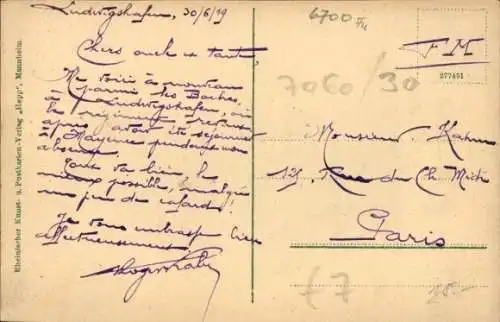 Ludwigshafen, 30/6/19
Chers oncle et tante,
Me voici à nouveau
parmi les Boches,
à Ludwigshafen, où
le régiment retourne
après avoir été séjourner
à Mayence pendant mon
absence.
Tout va bien le
mieux possible, malgré
un peu de cafard!
Je vous embrasse bien
affectueusement
Roger Kahn
Rheinischer Kunst- u. Postkarten-Verlag „Hepp“, Mannheim.
6700
7060/30
F M
277451
Monsieur Kahn
Rue du Ch. Midi
Paris
£7